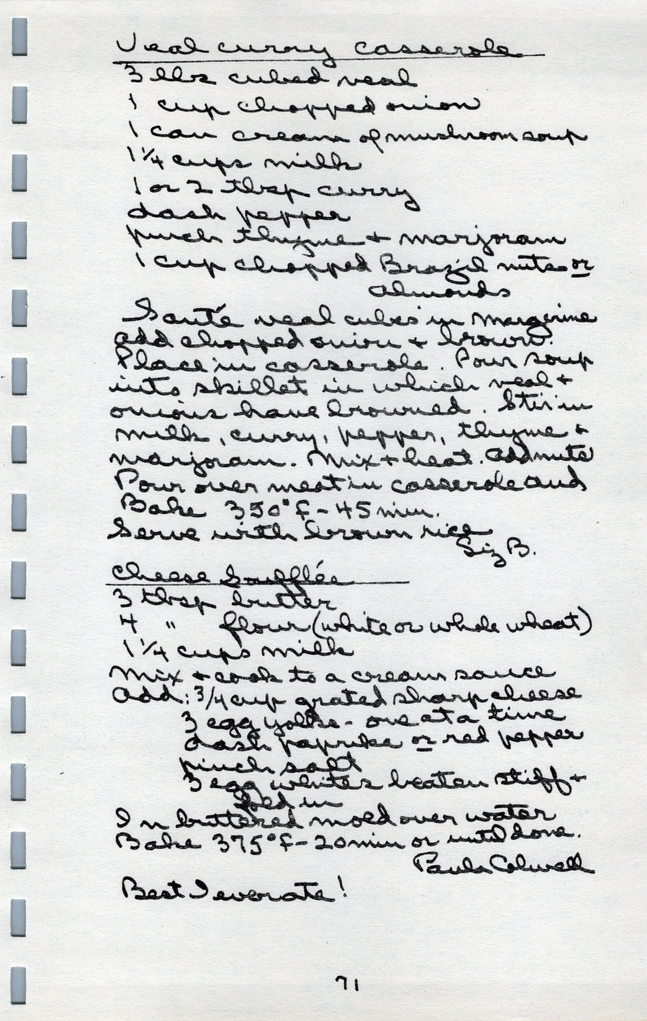 Veal curry casserole
3 lbs cubed veal
1 cup chopped onion
1 can cream of mushroom soup
1 1/4 cups milk
1 or 2 tbsp curry
dash pepper
pinch thyme + marjoram
1 cup chopped Brazil nuts or
almonds
Sauté veal cubes in margerine
add chopped onion + brown.
Place in casserole. Pour soup
into skillet in which veal +
onions have browned. Stir in
milk, curry, pepper, thyme +
marjoram. Mix + heat. Add nuts
Pour over meat in casserole and
Bake 350°F - 45 min.
Serve with brown rice
Liz B.
Cheese Soufflée
3 tbsp butter
4 " flour (white or whole wheat)
1 1/4 cups milk
Mix + cook to a cream sauce
Add: 3/4 cup grated sharp cheese
3 egg yolks - one at a time
dash paprika or red pepper
pinch salt
3 egg whites beaten stiff +
fold in
In buttered mold over water
Bake 375°F - 20 min or until done.
Paula Colwell
Best I ever ate!
71